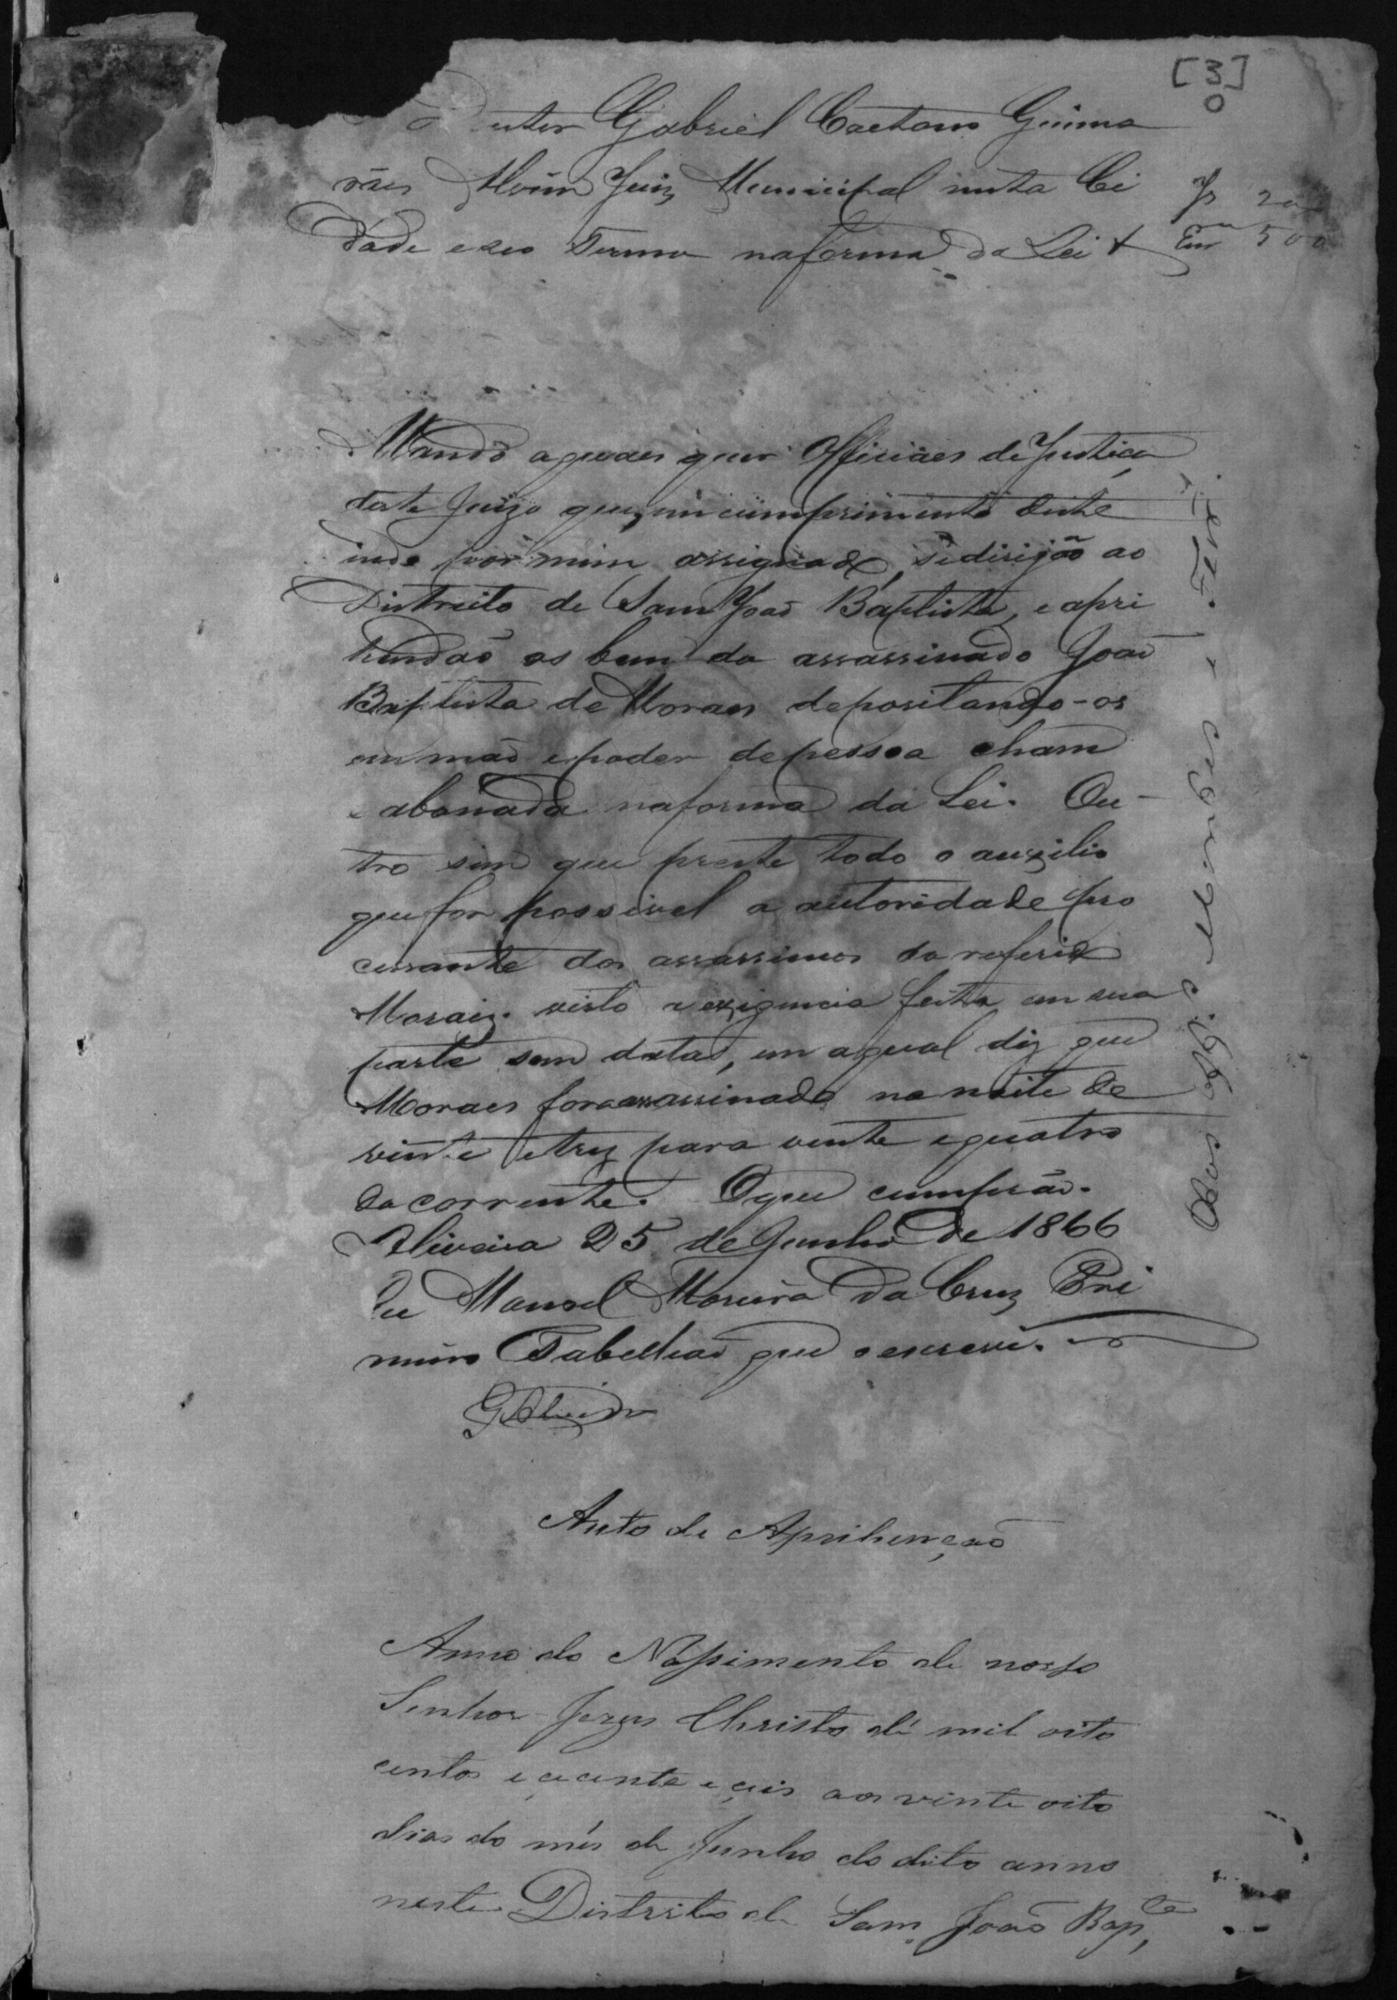 [3]
Doutor Gabriel Caetano Guima
rães Alvim Juiz Municipal nesta Ci
dade e seo Termo na forma da Lei &
Jz 200
Em 500
Mando aquaes quer Officiaes de Justiça
deste Juizo que, em cumprimento deste
indo por mim assignado, se dirijão ao
Districto de Sam João Baptista, e apri
hendão os bens do assassinado João
Baptista de Moraes depositando-os
em mão e poder de pessoa cham
e abonada na forma da Lei. Ou-
tro sim que preste todo o auxilio
que for possivel a autoridade pro
cessante dos assassinos do referido
Moraiz. visto a exigencia feita em sua
parte sem datas, em a qual diz que
Moraes fora assassinado na noite de
vinte e trez para vinte e quatro
do corrente. O que cumprão.
Oliveira 25 de Junho de 1866
Eu Manoel Moreira da Cruz Pri
meiro Tabellião que o escrevi.
Auto de Aprihenção
Anno do Nassimento de nosso
Senhor Jezus Christo de mil oito
centos e çecenta e çeis aos vinte oito
dias do mês de Junho do dito anno
neste Distrito de Sam João Bap,ta